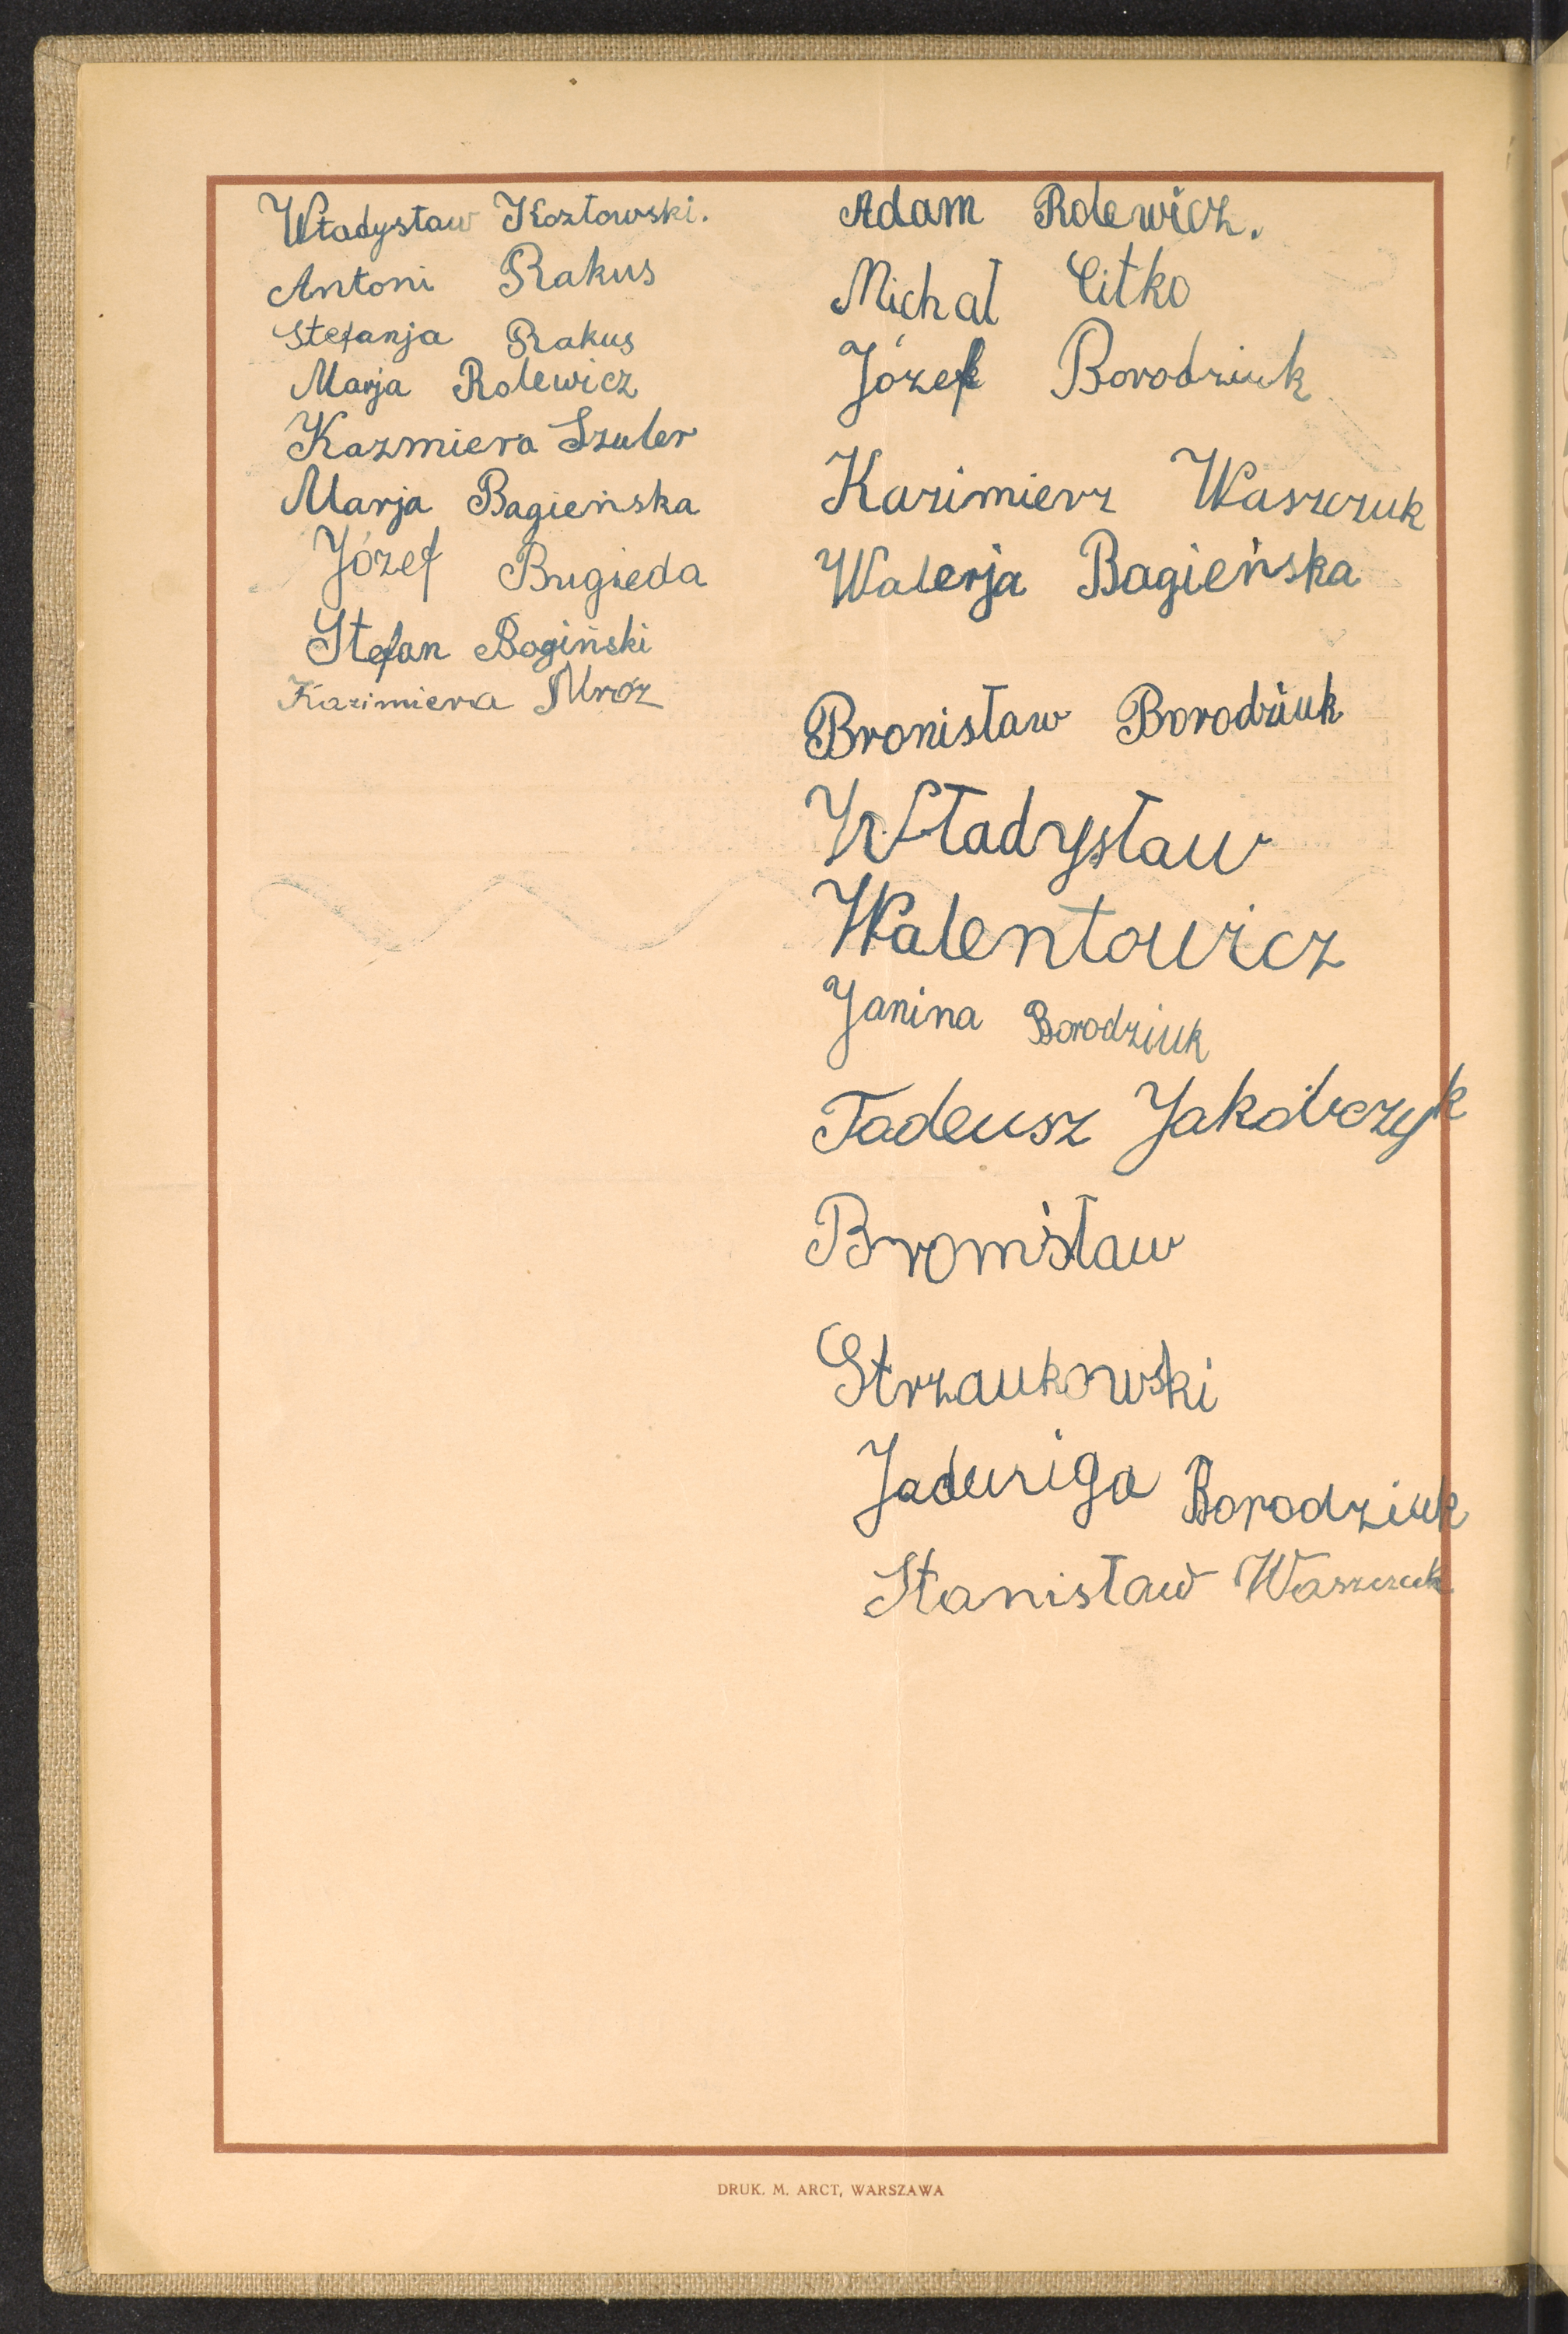 Władysław Kozłowski.
Antoni Rakus
Stefanja Rakus
Marja Rolewicz
Kazmiera Szuler
Marja Bagieńska
Józef Bugieda
Stefan Bogiński
Kazimiera Mróz
Adam Rolewicz.
Michał Citko
Józef Borodziuk
Kazimierz Waszczuk
Walerja Bagieńska
Bronisław Borodziuk
Władysław
Walentowicz
Janina Borodziuk
Tadeusz Jakóbczyk
Bronisław
Strzaukowski
Jadwiga Borodziuk
Stanisław Waszczuk
DRUK. M. ARCT, WARSZAWA